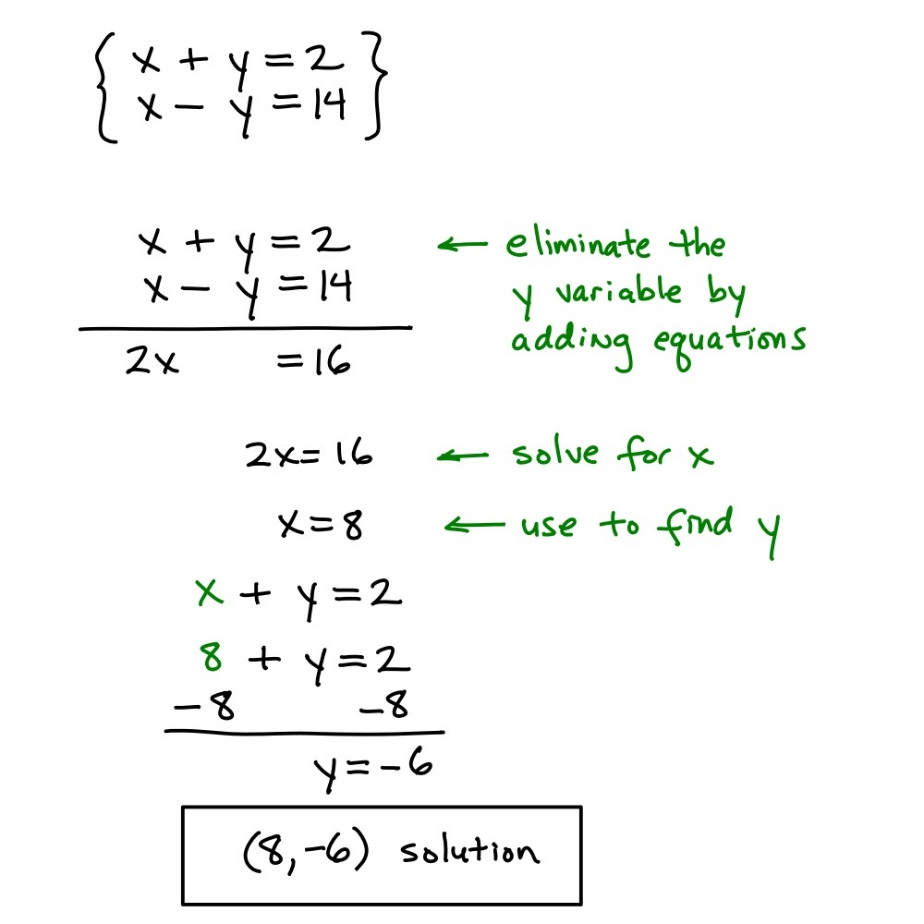 { x + y = 2 }
x - y = 14
x + y = 2 ← eliminate the
x - y = 14 y variable by
adding equations
2x = 16
2x = 16 ← solve for x
x = 8 ← use to find y
x + y = 2
8 + y = 2
-8 -8
y = -6
(8, -6) solution